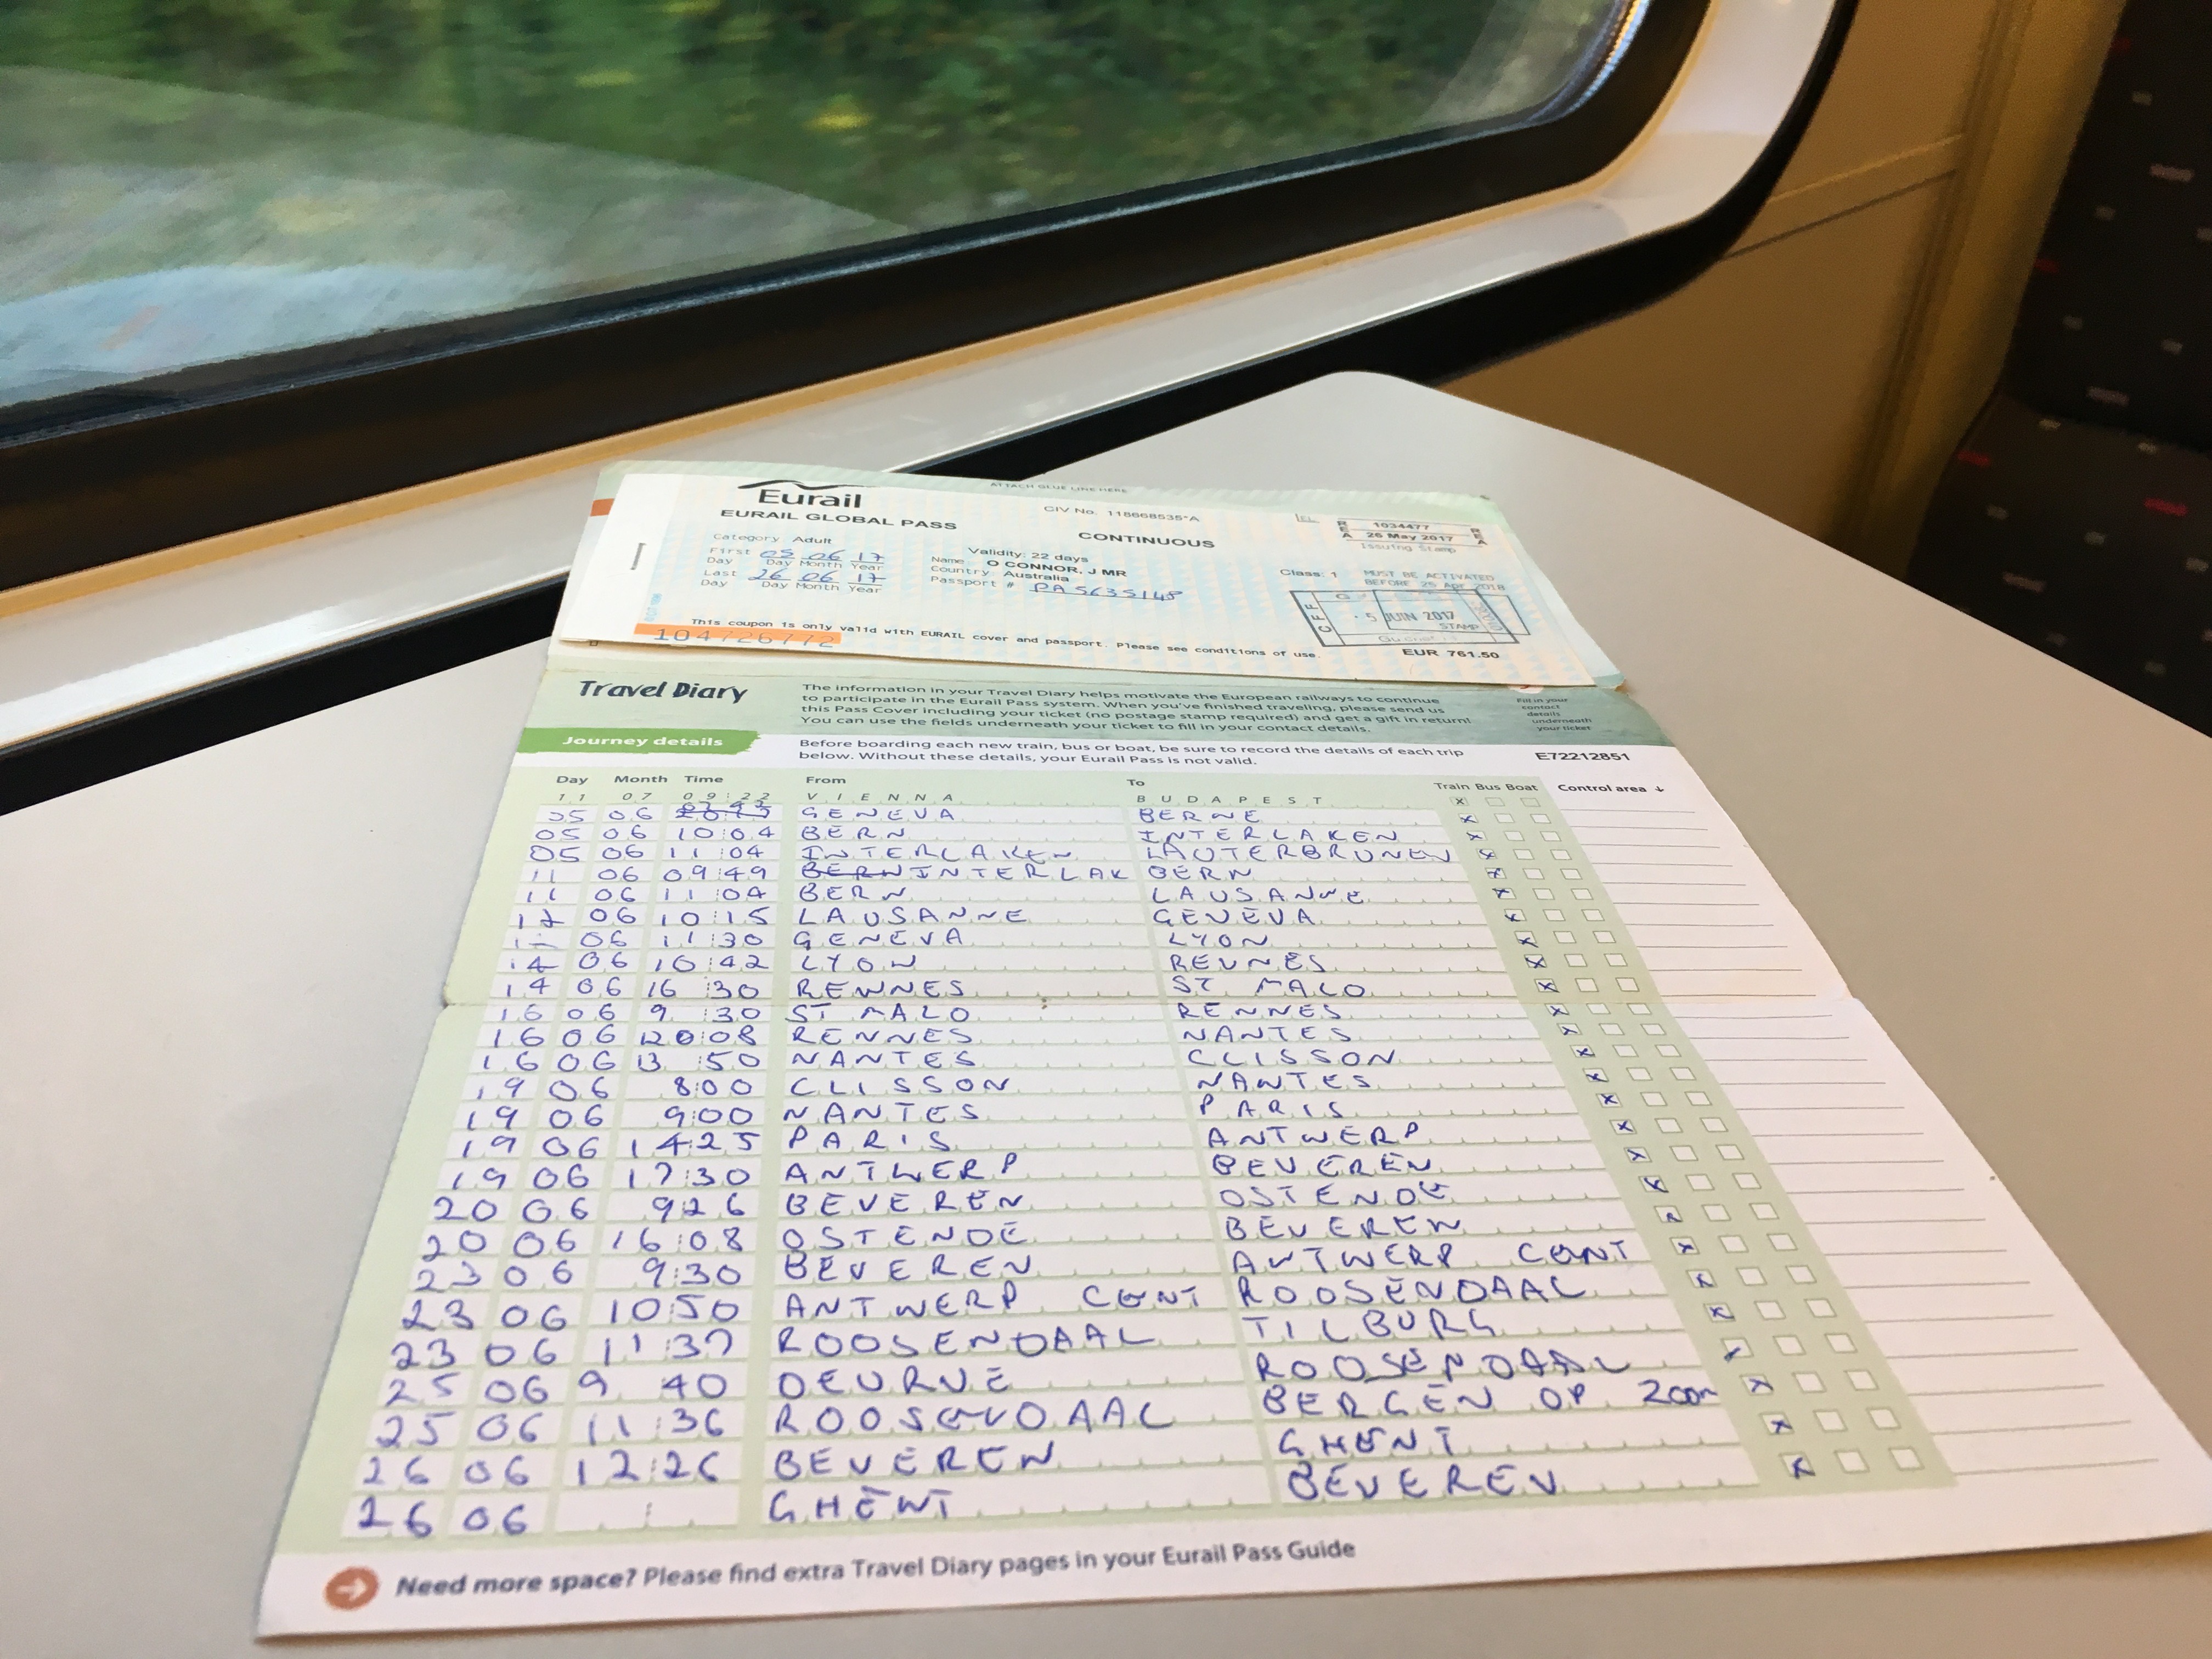 ATTACH GLUE LINE HERE
Eurail
EURAIL GLOBAL PASS
CIV No. 118668535*A
CONTINUOUS
1034477
26 May 2017
Issuing Stamp
Category Adult
First Day 05 06 17
Day Month Year
Last Day 26 06 17
Day Month Year
Validity: 22 days
Name O CONNOR, J MR
Country Australia
Passport # PA5635148
Class: 1
MUST BE ACTIVATED
BEFORE 25 Apr 2018
CFF
5 JUIN 2017
STAMP
This coupon is only valid with EURAIL cover and passport. Please see conditions of use.
104726772
EUR 761.50
Travel Diary
The information in your Travel Diary helps motivate the European railways to continue
to participate in the Eurail Pass system. When you've finished traveling, please send us
this Pass Cover including your ticket (no postage stamp required) and get a gift in return!
You can use the fields underneath your ticket to fill in your contact details.
Fill in your
contact
details
underneath
your ticket
Journey details
Before boarding each new train, bus or boat, be sure to record the details of each trip
below. Without these details, your Eurail Pass is not valid.
E72212851
Day Month Time From To Train Bus Boat Control area ↓
11 07 09:22 VIENNA BUDAPEST
05 06 GENEVA BERNE
05 06 10:04 BERN INTERLAKEN
05 06 11:04 INTERLAKEN LAUTERBRUNEN
11 06 09:49 BERN INTERLAK BERN
11 06 11:04 BERN LAUSANNE
06 10:15 LAUSANNE GENEVA
06 11:30 GENEVA LYON
14 06 10:42 LYON RENNES
14 06 16:30 RENNES ST MALO
16 06 9:30 ST MALO RENNES
16 06 12:08 RENNES NANTES
16 06 13:50 NANTES CLISSON
19 06 8:00 CLISSON NANTES
19 06 9:00 NANTES PARIS
19 06 14:25 PARIS ANTWERP
19 06 17:30 ANTWERP BEVEREN
20 06 926 BEVEREN OSTENDE
20 06 16:08 OSTENDE BEVEREN
23 06 9:30 BEVEREN ANTWERP CENT
23 06 10:50 ANTWERP CENT ROOSENDAAL
23 06 11:37 ROOSENDAAL TILBURG
25 06 9 40 DEURNE ROOSENDAAL
25 06 11:36 ROOSENDAAL BERGEN OP ZOOM
26 06 12:26 BEVEREN GHENT
26 06 GHENT BEVEREN
Need more space? Please find extra Travel Diary pages in your Eurail Pass Guide